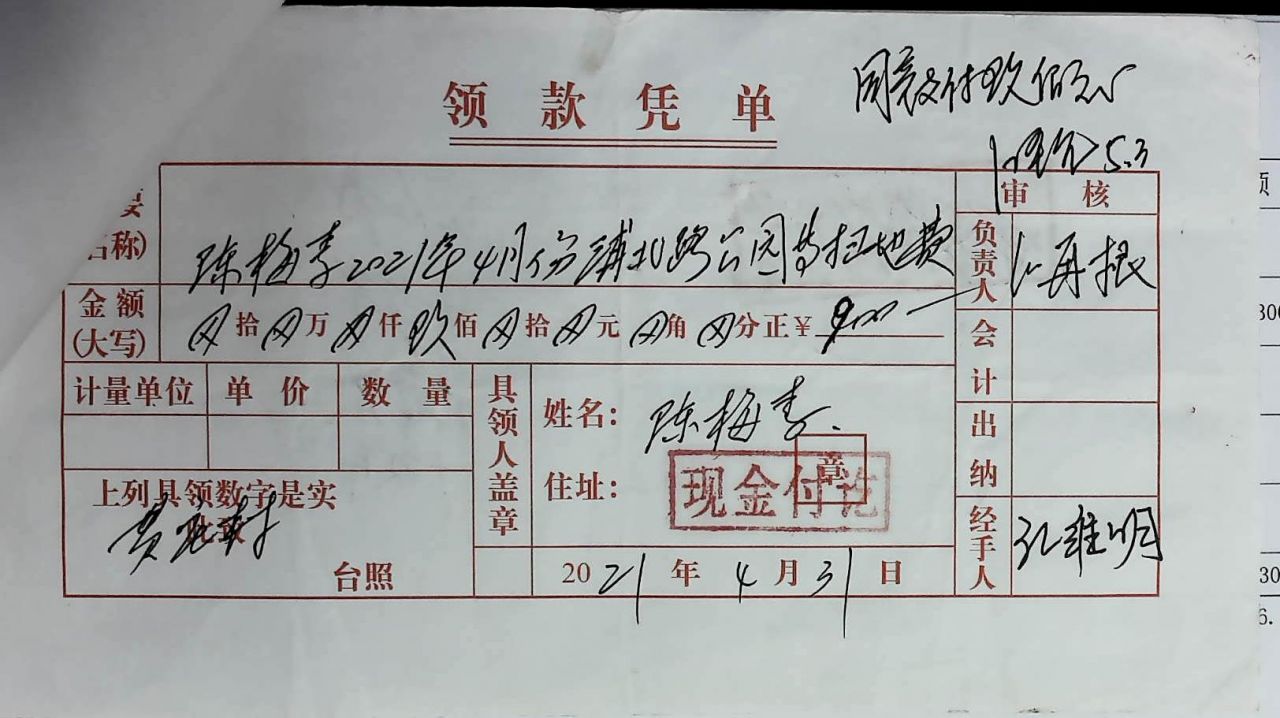 领款凭单
同意支付玖佰元
5.3
名称)
陈梅李2021年4月份浦北路公园等扫地费
审核
负责人
再根
金额(大写)
⊗拾⊗万⊗仟玖佰⊗拾⊗元⊗角⊗分正¥900—
会计
计量单位 单价 数量
具领人盖章
姓名: 陈梅李
住址:
章
现金付讫
出纳
上列具领数字是实
此致
台照
2021年4月31日
经手人
孔维明